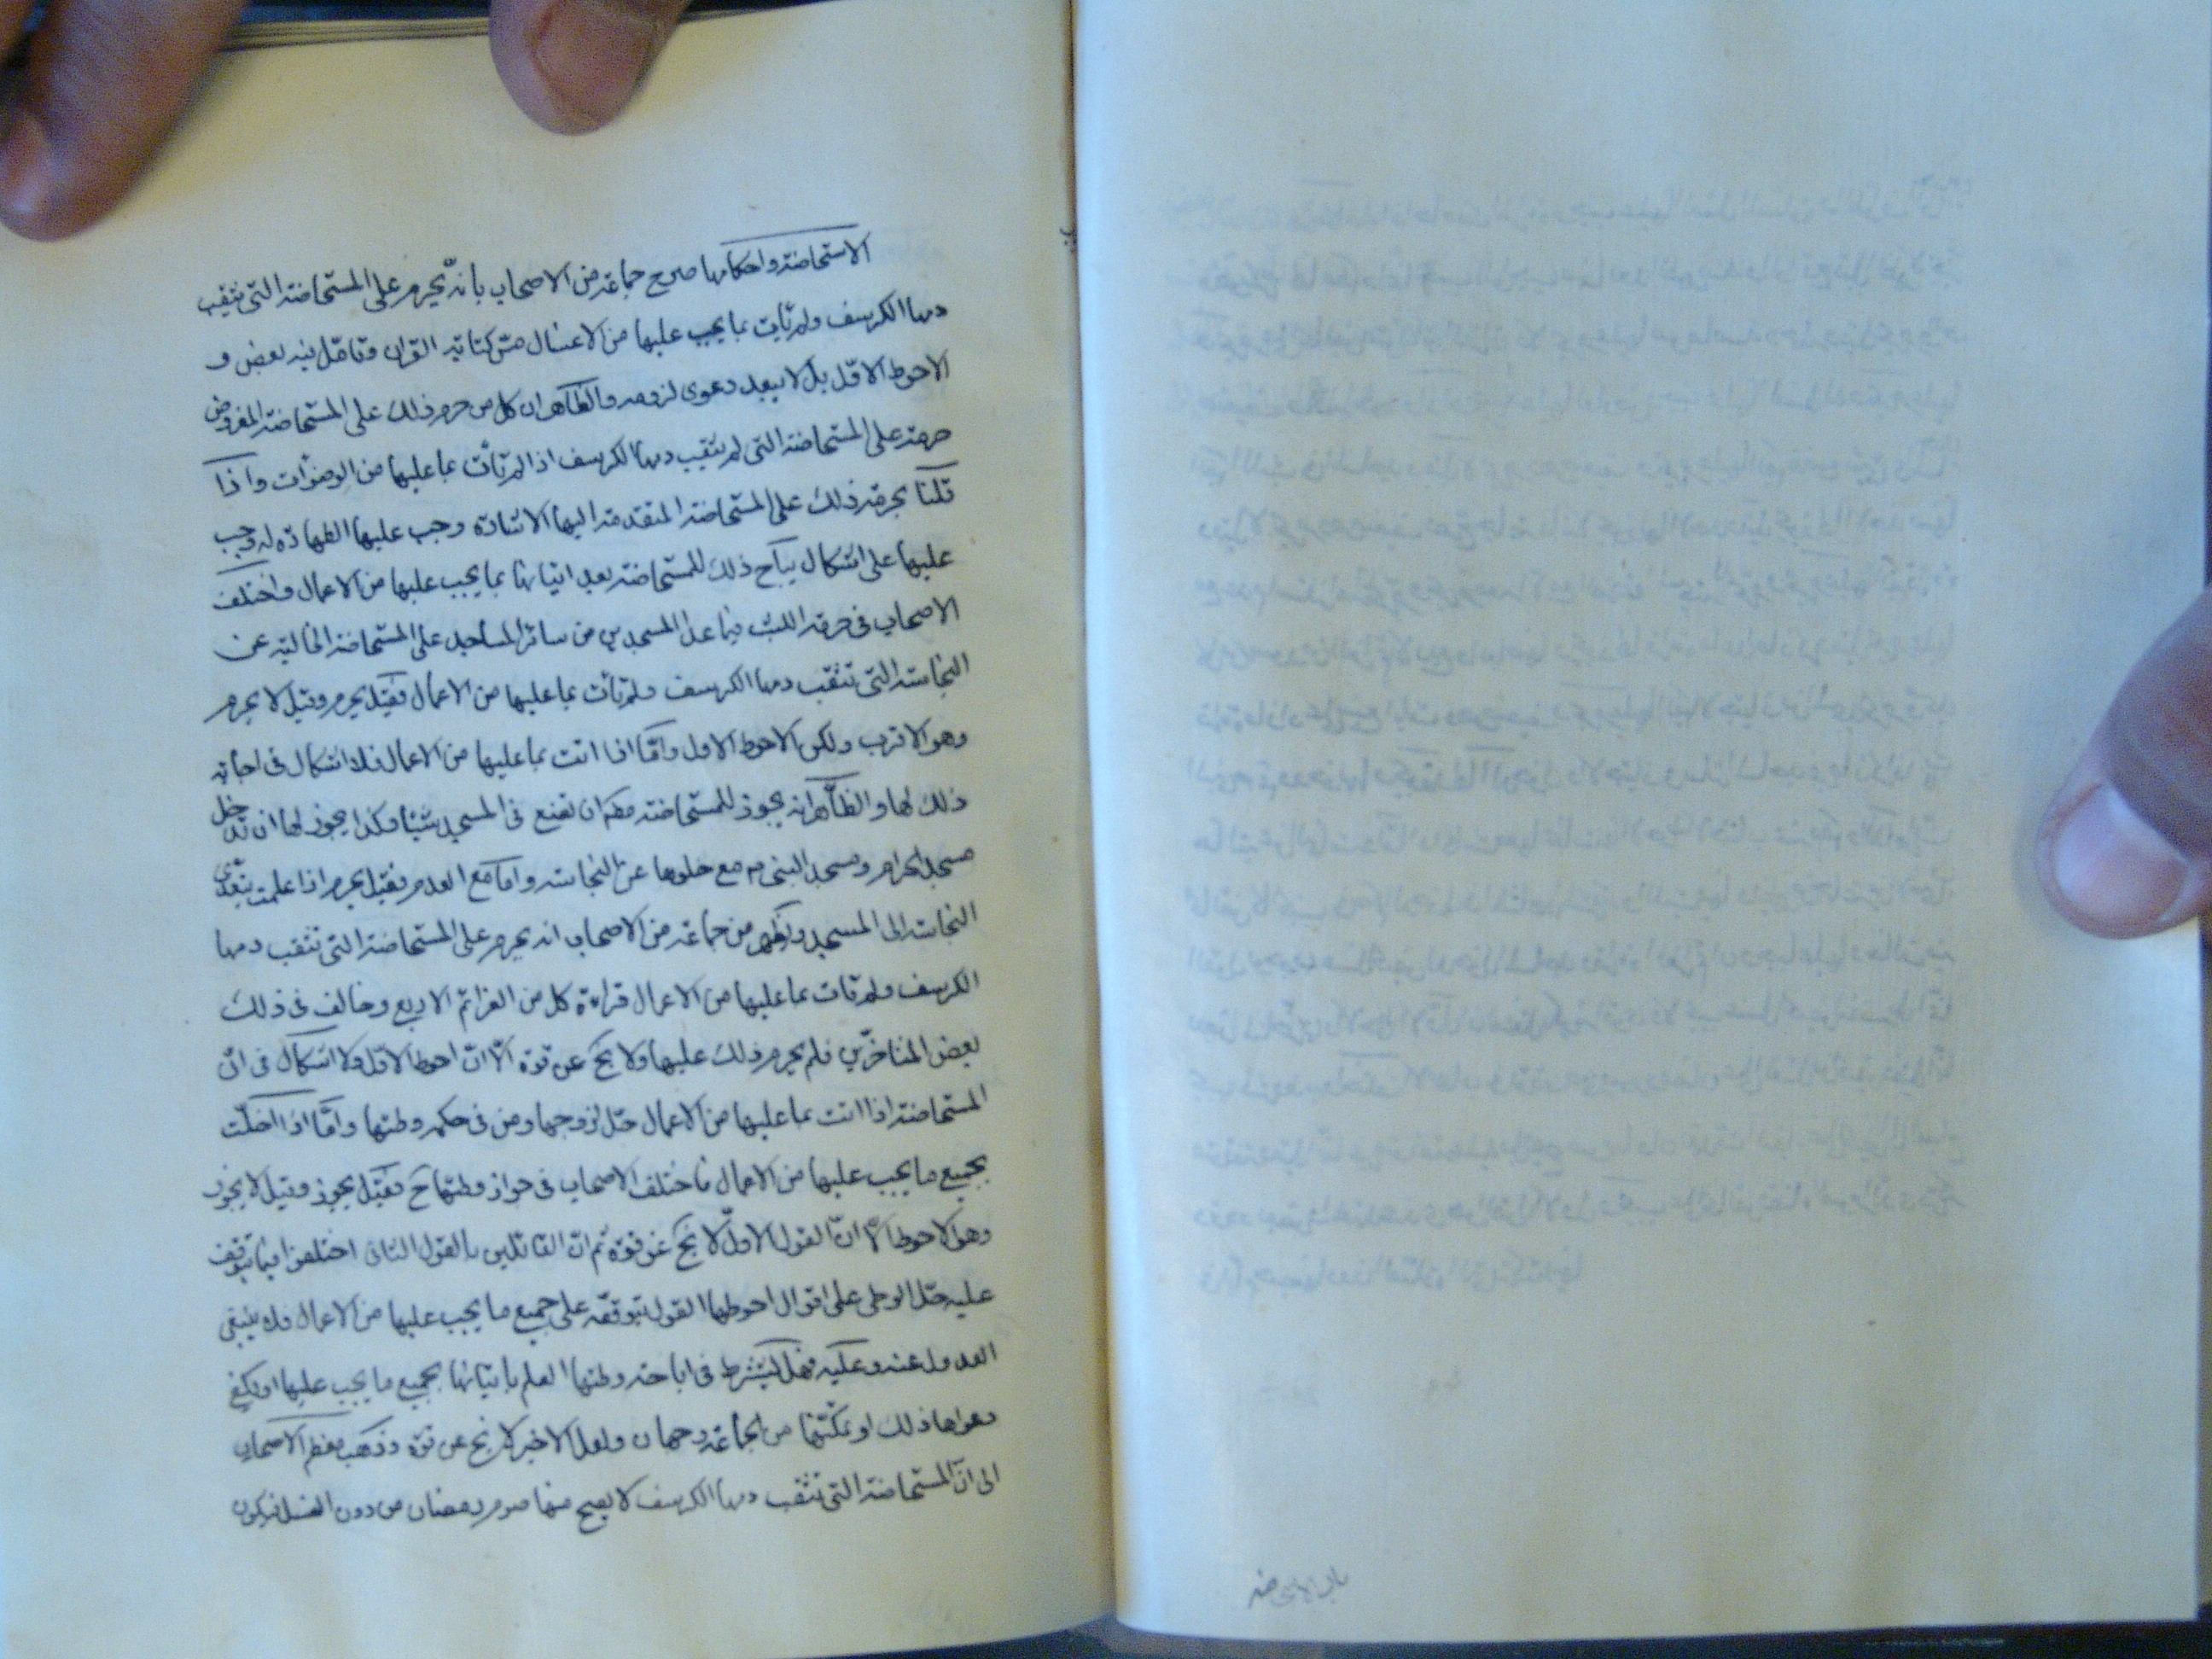 الاستحاضة واحكامها صرح جماعة من الاصحاب بانه يحرم على المستحاضة التى تثقب
دمها الكرسف ولم تأت بما يجب عليها من الاغسال مس كتابة القران وتامّل فيه بعض و
الاحوط الاوّل بل لا يبعد دعوى لزومه والظاهر ان كل من حرم ذلك على المستحاضة المفروضة
حرمه على المستحاضة التى لم يثقب دمها الكرسف اذا لم تأت بما عليها من الوضوات واذا
قلنا بحرمة ذلك على المستحاضة المتقدمة اليها الاشارة وجب عليها الطهارة له لو وجب
عليها على اشكال يباح ذلك للمستحاضة بعد اتيانها بما يجب عليها من الاعمال واختلف
الاصحاب فى حرمة اللبث فيما عدا المسجدين من سائر المساجد على المستحاضة الخالية عن
النجاسة التى تثقب دمها الكرسف ولم تأت بما عليها من الاعمال فقيل يحرم وقيل لا يحرم
وهو الاقرب ولكن الاحوط الاول وامّا اذا اتت بما عليها من الاعمال فلا اشكال فى اباحة
ذلك لها والظاهر انه يجوز للمستحاضة مطم ان تضع فى المسجد شيئا وكذا يجوز لها ان تدخل
مسجد الحرام ومسجد النبى ص مع خلوها عن النجاسة واما مع العدم فقيل يحرم اذا علمت بتعدّى
النجاسة الى المسجد ويظهر من جماعة من الاصحاب انه يحرم على المستحاضة التى تثقب دمها
الكرسف ولم تأت بما عليها من الاعمال قراءة كل من العزائم الاربع وخالف فى ذلك
بعض المتاخرين فلم يحرم ذلك عليها ولا يخ عن قوة الّا انّ احوط الاوّل ولا اشكال فى انّ
المستحاضة اذا اتت بما عليها من الاعمال حلّ لزوجها ومن فى حكمه وطئها وامّا اذا اخلّت
بجميع ما يجب عليها من الاعمال فاختلف الاصحاب فى جواز وطئها ح فقيل يجوز وقيل لا يجوز
وهو الاحوط الّا انّ القول الاوّل لا يخ عن قوة ثم انّ القائلين بالقول الثانى اختلفوا فيما يتوقف
عليه حلّ الوطى على اقوال احوطها القول بتوقفه على جميع ما يجب عليها من الاعمال فلا ينبغى
العدول عنه وعليه فهل يشترط فى اباحة وطئها العلم باتيانها بجميع ما يجب عليها او يكفى
دعواها ذلك او تمكّنها من الجماع وجهان ولعل الاخير لا يخ عن قوة وذهب معظم الاصحاب
الى انّ المستحاضة التى تثقب دمها الكرسف لا يصح منها صوم رمضان من دون الغسل فيكون